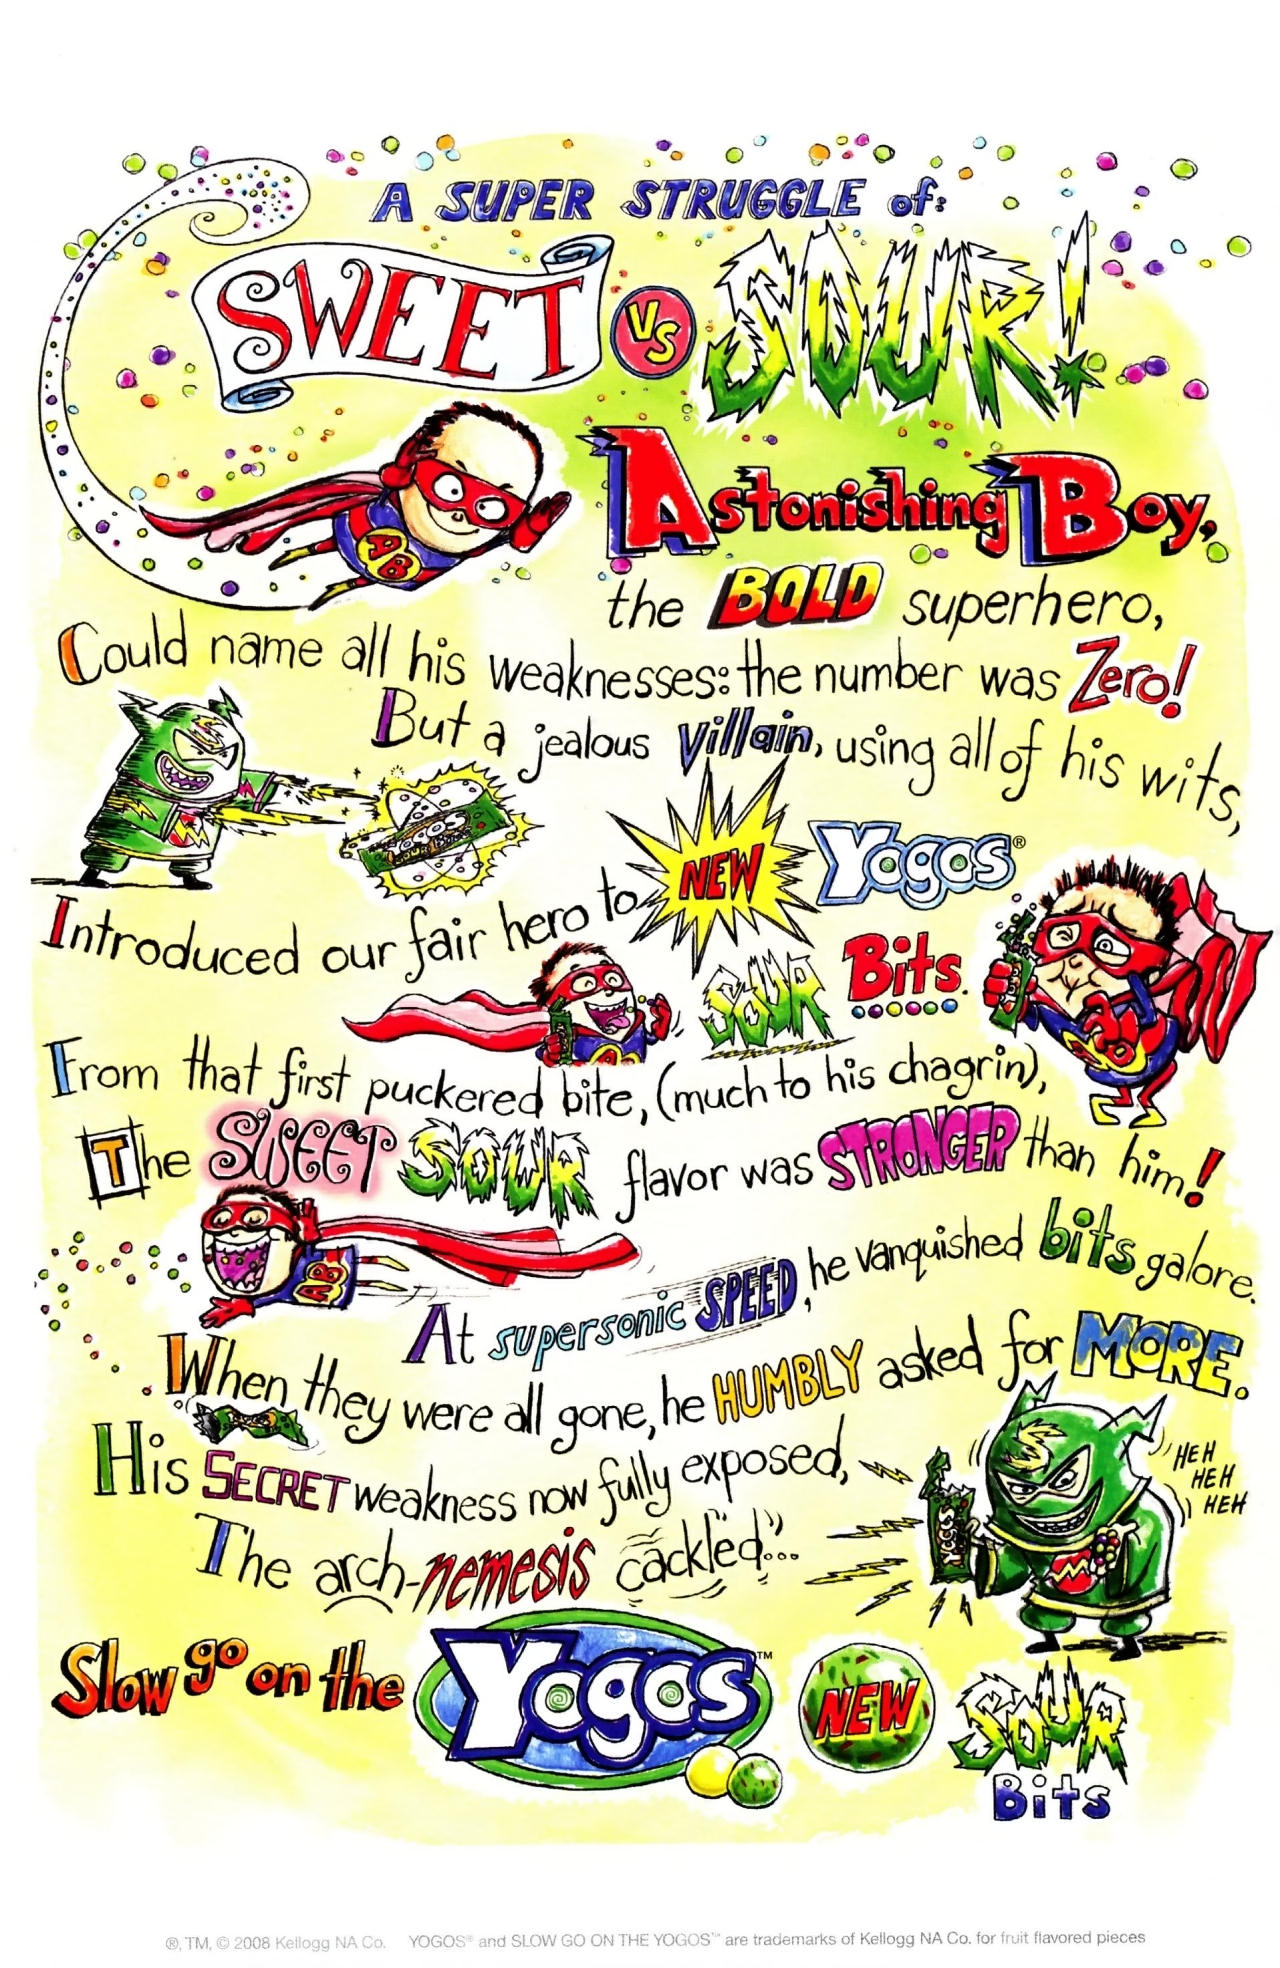 A SUPER STRUGGLE of:
SWEET VS SOUR!
Astonishing Boy,
AB
the BOLD superhero,
Could name all his weaknesses: the number was Zero!
But a jealous villain, using all of his wits,
SOUR Bits
Introduced our fair hero to NEW Yogos®
SOUR Bits.
From that first puckered bite, (much to his chagrin),
The SWEET SOUR flavor was STRONGER than him!
AB
At supersonic SPEED, he vanquished bits galore.
When they were all gone, he HUMBLY asked for MORE.
His SECRET weakness now fully exposed,
HEH
HEH
HEH
YOGOS
The arch-nemesis "cackled"...
Slow go on the Yogos™ NEW SOUR
Bits
®, TM, © 2008 Kellogg NA Co. YOGOS® and SLOW GO ON THE YOGOS™ are trademarks of Kellogg NA Co. for fruit flavored pieces